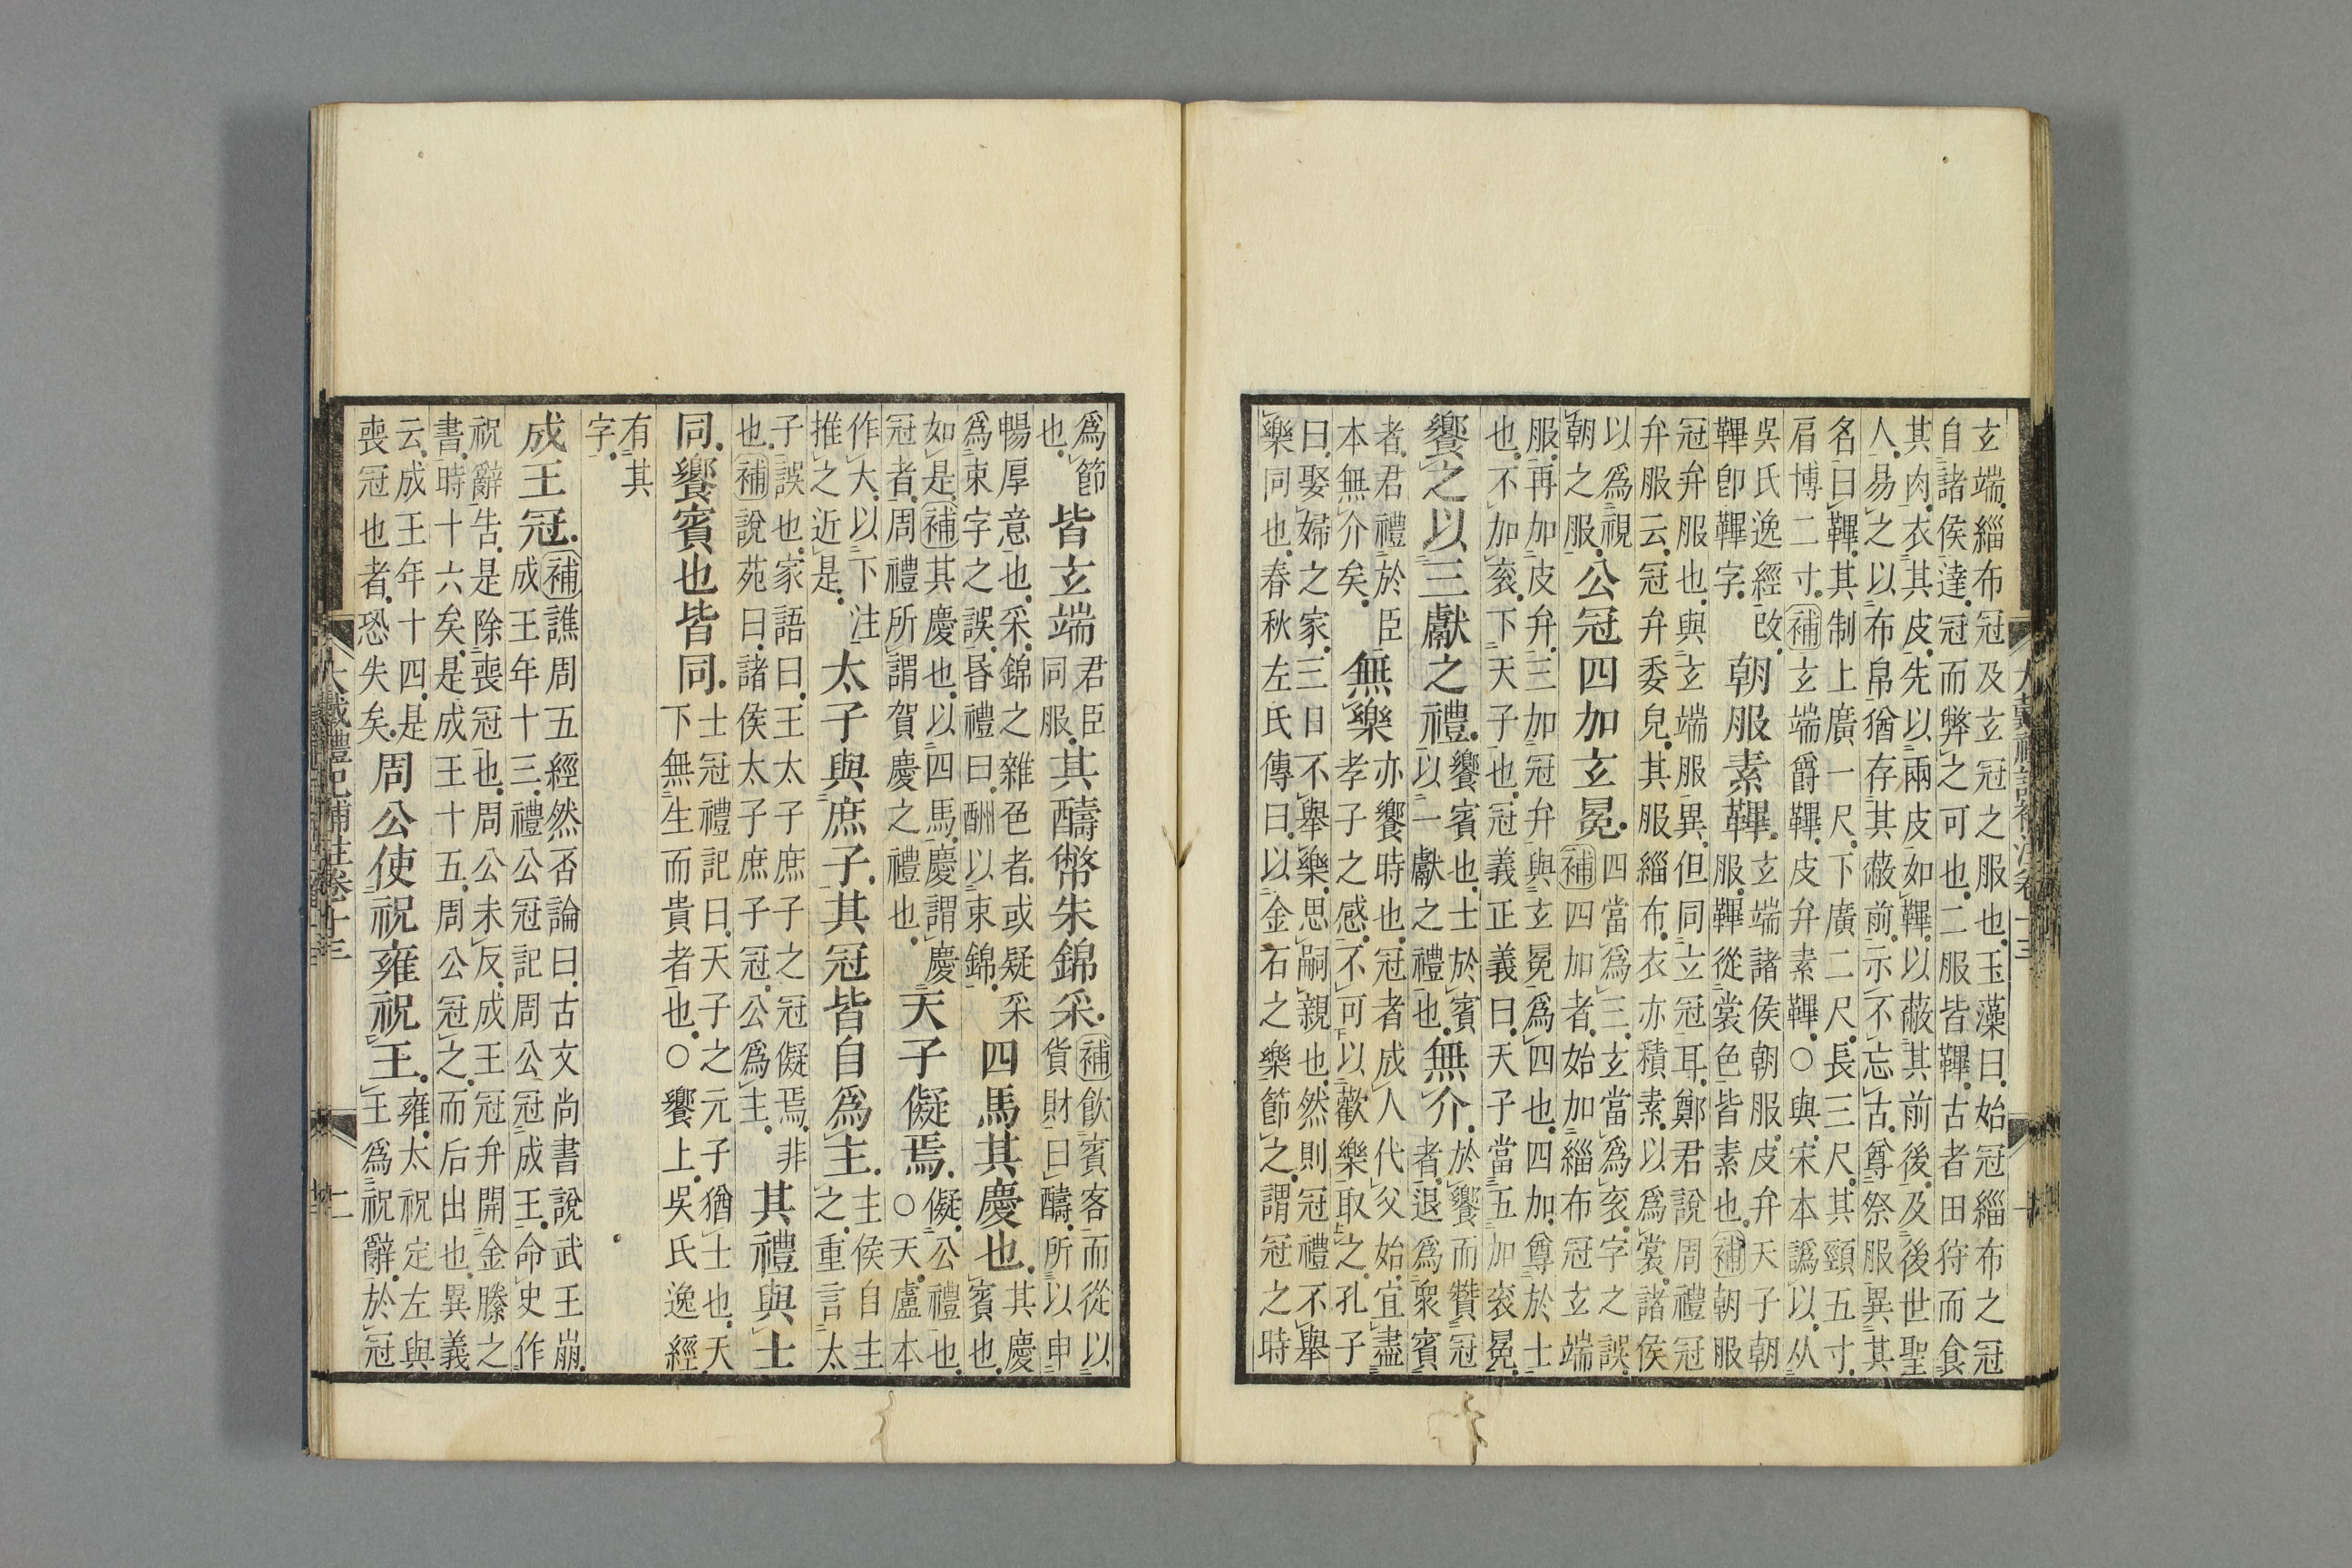 玄端緇布冠及玄冠之服也玉藻曰始冠緇布之冠
自諸侯達冠而弊之可也二服皆鞸古者田狩而食
其肉衣其皮先以兩皮如鞸以蔽其前後及後世聖
人易之以布帛猶存其蔽前示不忘古尊祭服異其
名曰鞸其制上廣一尺下廣二尺長三尺其頸五寸
肩博二寸補玄端爵鞸皮弁素鞸○與宋本譌以从
吳氏逸經改鞸卽鞸字朝服素鞸玄端諸侯朝服皮弁天子朝服鞸從裳色皆素也補朝服
冠弁服也與玄端服異但同立冠耳鄭君說周禮冠
弁服云冠弁委皃其服緇布衣亦積素以爲裳諸侯
以爲視朝之服公冠四加玄冕四當爲三玄當爲衮字之誤補四加者始加緇布冠玄端
服再加皮弁三加冠弁與玄冕爲四也四加尊於士
也不加衮下天子也冠義正義曰天子當五加衮冕
饗之以三獻之禮饗賓也士於賓以一獻之禮也無介於饗而贊冠者退爲衆賓
者君禮於臣本無介矣無樂亦饗時也冠者成人代父始宜盡孝子之感不可以歡樂取之孔子
曰娶婦之家三日不舉樂思嗣親也然則冠禮不舉
樂同也春秋左氏傳曰以金石之樂節之謂冠之時
爲節也皆玄端君臣同服其醻幣朱錦采補飮賓客而從以貨財曰醻所以申
暢厚意也采錦之雜色者或疑采爲束字之誤昏禮曰酬以束錦四馬其慶也其慶賓也
如是補其慶也以四馬慶謂慶冠者周禮所謂賀慶之禮也天子儗焉儗公禮也○天盧本
作大以下注推之近是太子與庶子其冠皆自爲主主侯自主之重言太
子誤也家語曰王太子庶子之冠儗焉非也補說苑曰諸侯太子庶子冠公爲主其禮與士
同饗賓也皆同士冠禮記曰天子之元子猶士也天下無生而貴者也○饗上吳氏逸經
有其字
成王冠補譙周五經然否論曰古文尚書說武王崩成王年十三禮公冠記周公冠成王命史作
祝辭告是除喪冠也周公未反成王冠弁開金縢之
書時十六矣是成王十五周公冠之而后出也異義
云成王年十四是喪冠也者恐失矣周公使祝雍祝王雍太祝定左與王爲祝辭於冠
大戴禮記補注卷十三
二